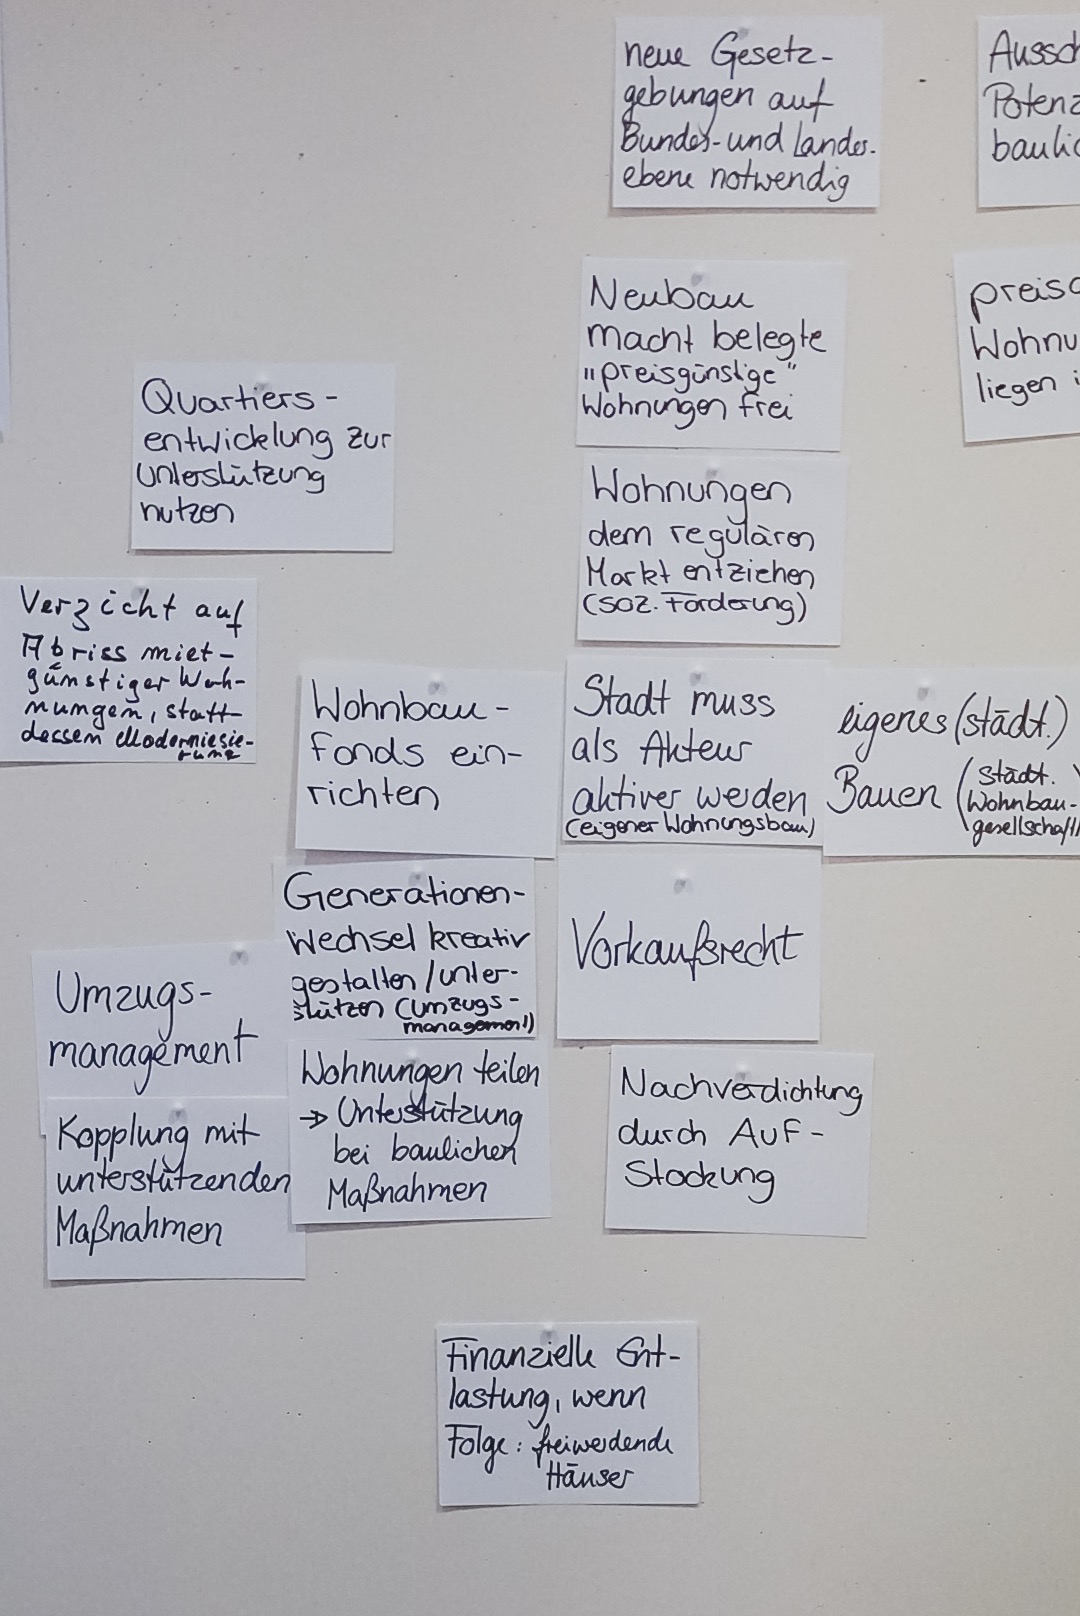 neue Gesetz-
gebungen auf
Bundes- und Landes-
ebene notwendig
Aussch
Potenz
baulic
Neubau
macht belegte
"preisgünstige"
Wohnungen frei
preisg
Wohnu
liegen i
Quartiers-
entwicklung zur
Unterstützung
nutzen
Wohnungen
dem regulären
Markt entziehen
(soz. Förderung)
Verzicht auf
Abriss miet-
günstiger Woh-
nungen, statt-
dessen Moderniesie-
rung
Wohnbau-
fonds ein-
richten
Stadt muss
als Akteur
aktiver werden
(eigener Wohnungsbau)
eigenes (städt.)
Bauen (städt.
Wohnbau-
gesellschaft
Generationen-
wechsel kreativ
gestalten / unter-
stützen (Umzugs-
management)
Vorkaufsrecht
Umzugs-
management
Wohnungen teilen
→ Unterstützung
bei baulichen
Maßnahmen
Nachverdichtung
durch Auf-
stockung
Kopplung mit
unterstützenden
Maßnahmen
Finanzielle Ent-
lastung, wenn
Folge: freiwerdende
Häuser